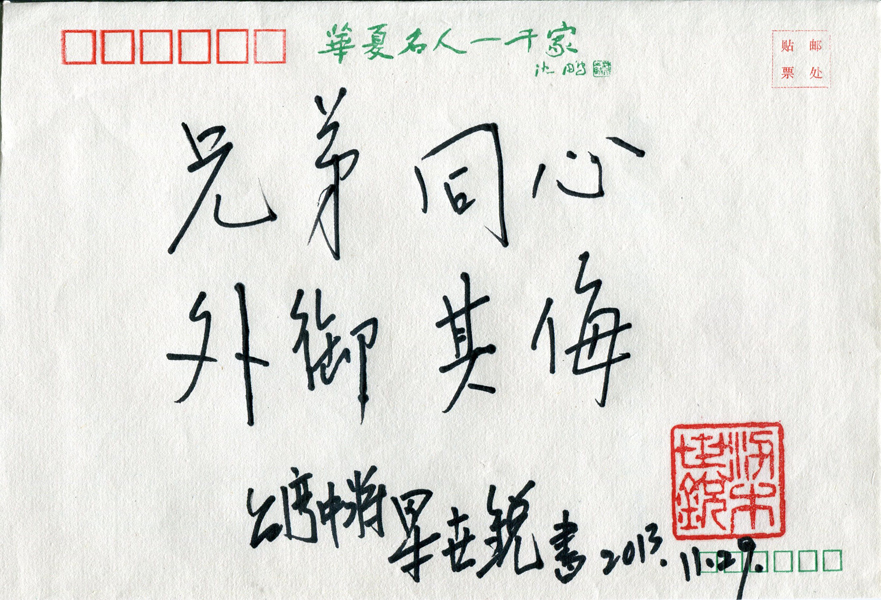 華夏名人一千家
沈鹏
贴邮
票处
兄弟同心
外御其侮
台湾中将畢世銳書 2013.11.29.